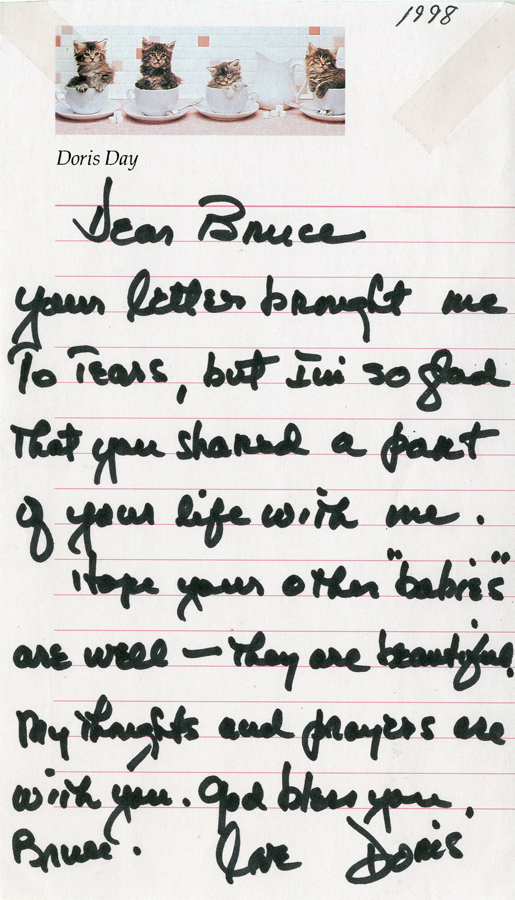 1998
Doris Day
Dear Bruce
your letter brought me
To Tears, but I'm so glad
That you shared a part
of your life with me.
Hope your other "babies"
are well — They are beautiful.
My thoughts and prayers are
with you. God bless you,
Bruce. Love Doris